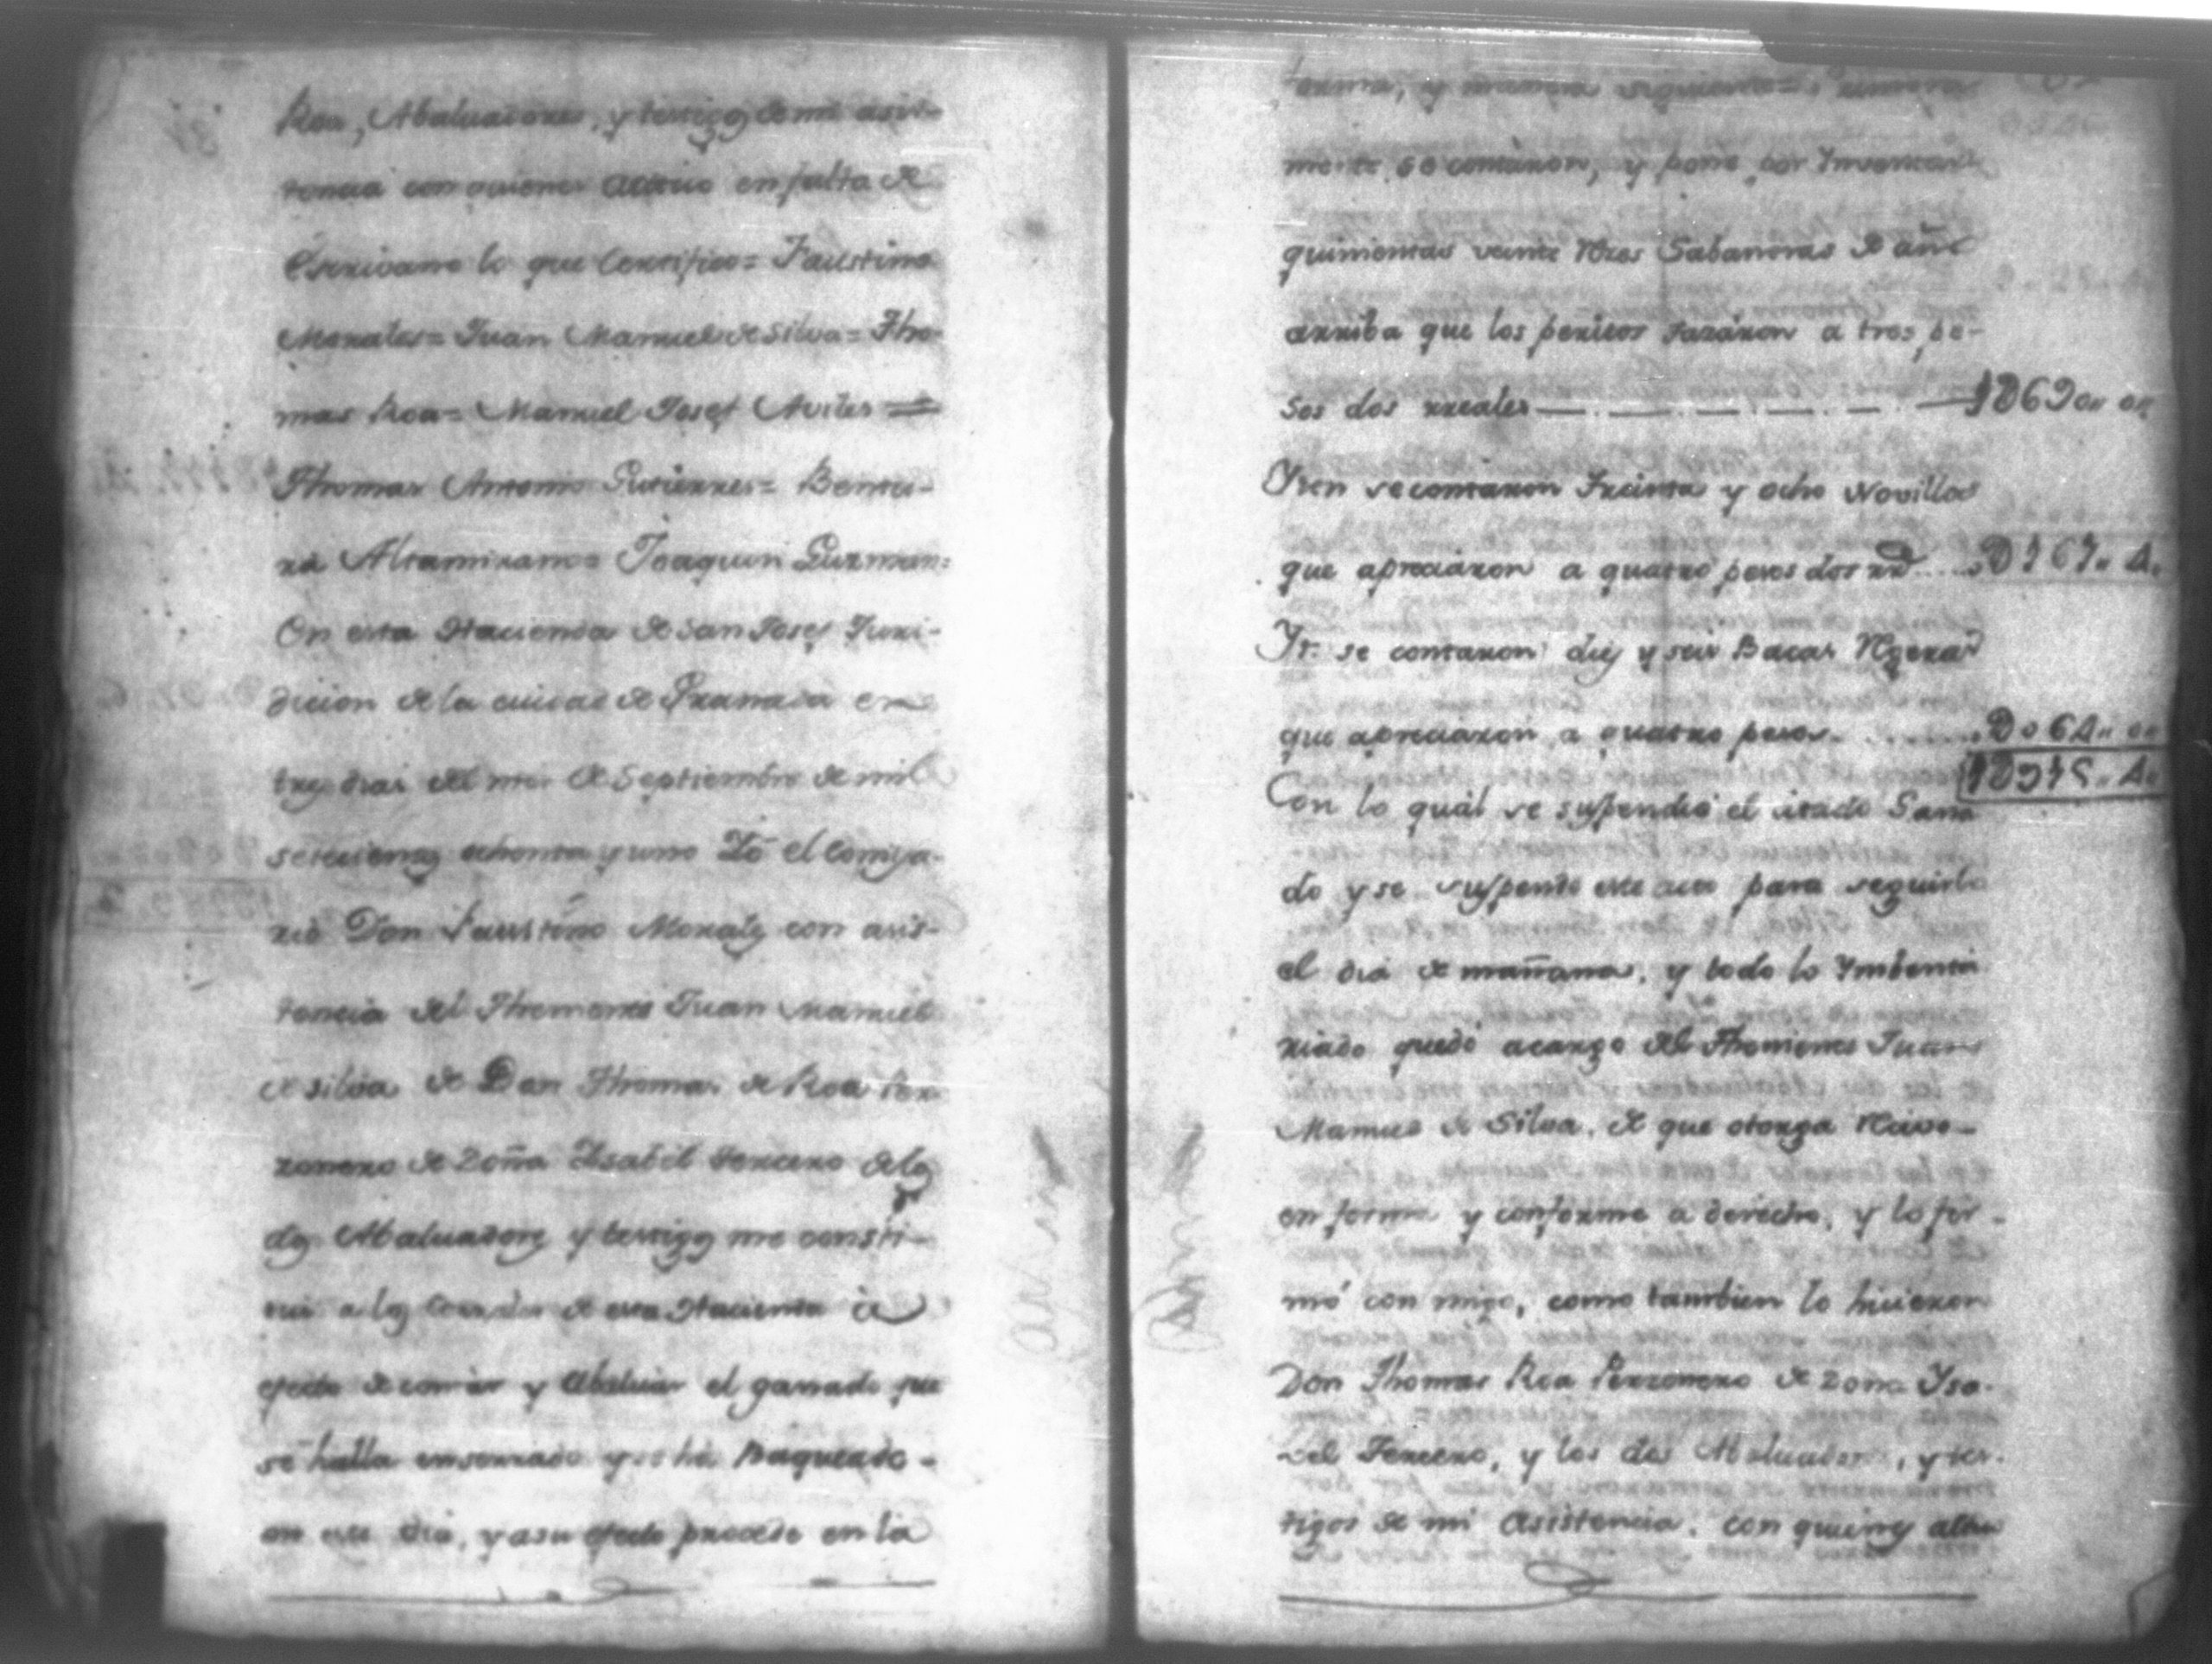 Roa, Abaluadores, y testigos de mi asis-
tencia con quienes actuo en falta de
Escrivano lo que Certifico= Faustino
Morales= Juan Manuel de Silva= Tho-
mas Roa= Manuel Josef Aviles =
Thomas Antonio Gutierres= Bentu-
ra Altamirano= Joaquin Guzman=
En esta Hacienda de San Josef Juri-
dicion de la ciudad de Granada en
tres dias del mes de Septiembre de mil
setecientos ochenta y uno Yo el Comisa-
rio Don Faustino Morales con asis-
tencia del Theniente Juan Manuel
de Silva de Don Thomas de Roa Per-
zonero de Doña Ysabel Tercero de los
dos Abaluadores y testigos me consti-
tui a los Corrales de esta Hacienda a
efecto de contar y Abaluar el ganado que
se halla enserrado y se há Baqueado-
en este dia, y a su efecto procedo en la
forma, y manera siguiente= Primera
mente se contaron, y pone por Ymventar
quinientas veinte Rzes Sabaneras de año
arriba que los peritos tazáron a tres pe-
sos dos rreales
Yten se contaron Treinta y ocho Novillos
que apreciáron a quatro pesos dos rr.^s D161,, 4,,
Yt. se contaron diez y seis Bacas
que apreciaron a quatro pesos. D064,, 0,,
Con lo qual se suspendió el citado Gana
do y se suspende este auto para seguirlo
el dia de mañana, y todo lo Ymbenta
riado quedó a cargo del Theniente Juan
Manuel de Silva, de que otorga Recivo-
en forma y conforme a derecho, y lo fir-
mó con migo, como tambien lo hicieron
Don Thomas Roa Perzonero de Doña Ysa-
bel Tercero, y los dos Abaluadores, y tes-
tigos de mi Asistencia, con quienes actuo